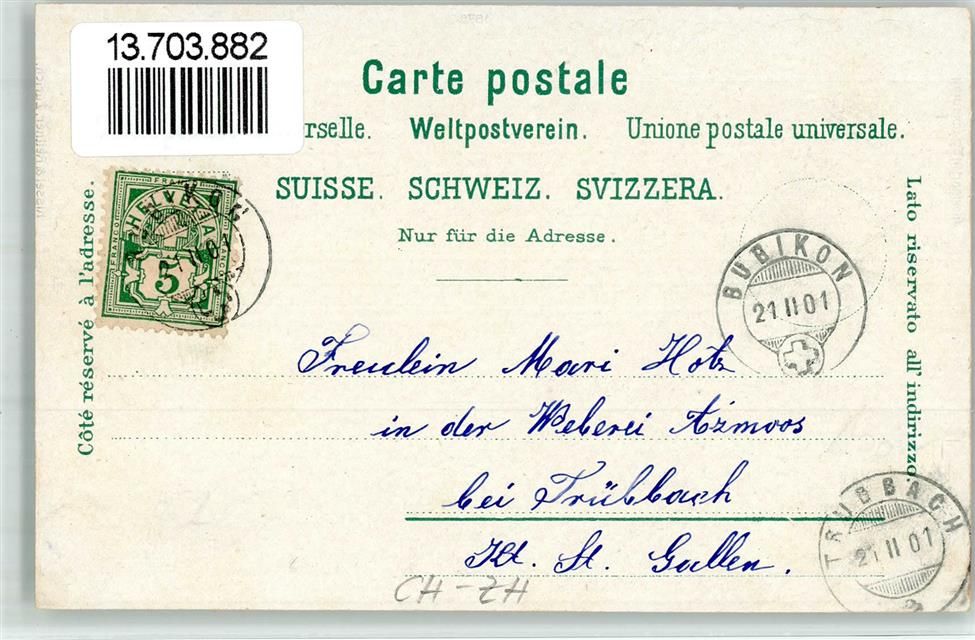 13.703.882
Carte postale
rselle. Weltpostverein. Unione postale universale.
SUISSE. SCHWEIZ. SVIZZERA.
Nur für die Adresse.
Côté réservé à l'adresse.
Lato riservato all'indirizzo
FRANCO
HELVETIA
5
BUBIKON
21 II 01
Freulein Mari Hotz
in der Weberei Azmoos
bei Trübbach
Kt. St. Gallen.
TRÜBBACH
21 II 01
CH-ZH